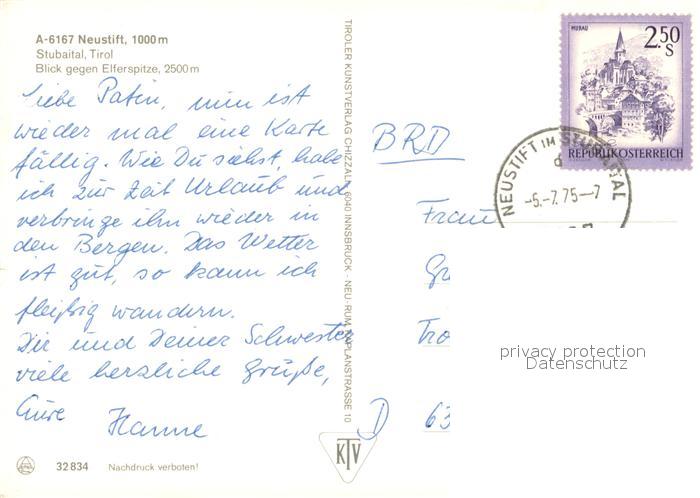 A-6167 Neustift, 1000 m
Stubaital, Tirol
Blick gegen Elferspitze, 2500 m
Liebe Patin, nun ist
wieder mal eine Karte
fällig. Wie Du siehst, habe
ich zur Zeit Urlaub und
verbringe ihn wieder in
den Bergen. Das Wetter
ist gut, so kann ich
fleißig wandern.
Dir und Deiner Schwester
viele herzliche Grüße,
Eure Hanne
32 834 Nachdruck verboten!
TIROLER KUNSTVERLAG CHIZZALI, 6040 INNSBRUCK - NEU-RUM, KAPLANSTRASSE 10
KTV
MURAU
2.50
S
REPUBLIK ÖSTERREICH
NEUSTIFT IM STUBAITAL
-5.-7.75-7
BRD
Frau
Gr
Tro
D 63
privacy protection
Datenschutz